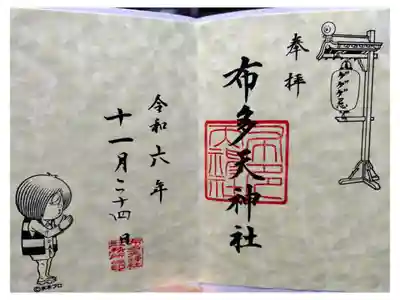 奉拝
布多天神社
令和六年
十一月二十四日
ゲゲゲ忌
©水木プロ